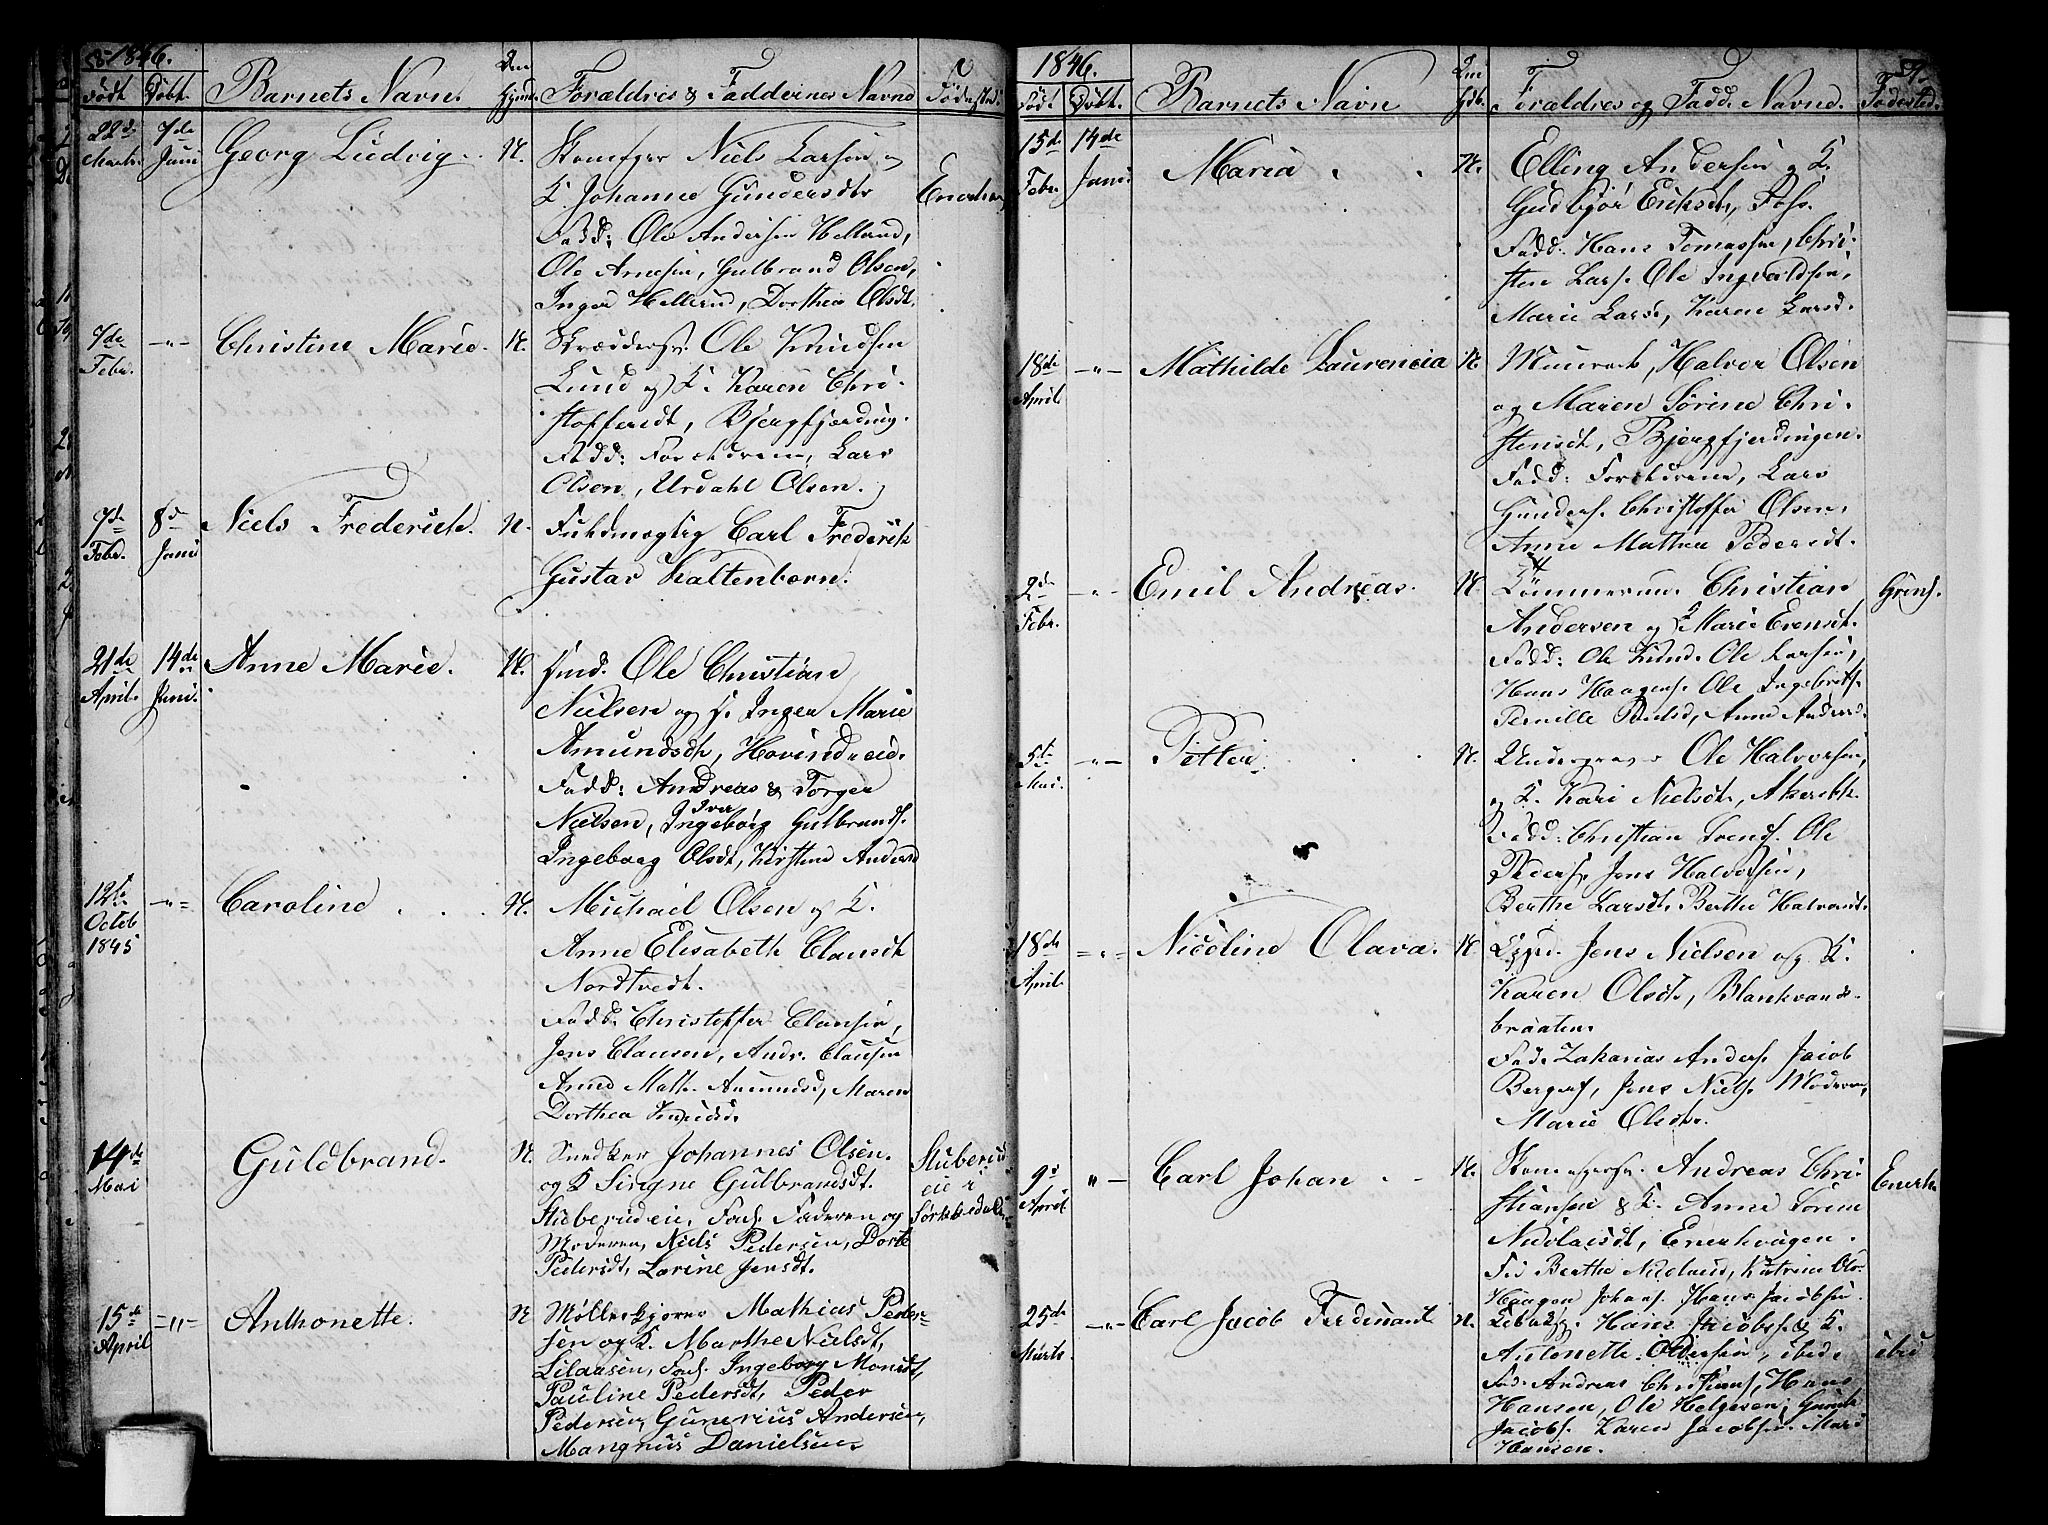 1846.
Født Døbt. Barnets Navn. Forældres & Faddernes Navne Fødested.
22de Marts. 7de Juni Georg Ludvig. N. Niels Larsen og
K. Johanne Gundersdtr Enerhau
Fadd: Ole Andersen Hellerud,
Ole Arnesen, Gulbrand Olsen,
Inger Hellerud, Dorthea Olsdt.
7de Febr. -"- Christine Marie. N. Skræddersv. Ole Knudsen
Lund og K. Karen Chri-
stoffersdt, Bjergfjerding.
Fadd: Forældrene, Lars
Olsen, Urdahl Olsen.
7de Febr. 8d Juni Niels Frederich. N. Fuldmægtig Carl Frederik
Gustav Kaltenborn.
21de April. 14de Juni. Anne Marie. N. Ole Christian
Nielsen og K. Inger Marie
Amundsdt, Hovindseie.
Fadd: Andreas & Torger
Iver
Nielsen, Ingeborg Gulbrands.
Ingeborg Olsdt, Kirstine Andersd
12te Octob 1845 -"- Caroline N. Michael Olsen og K.
Anne Elisabeth Clausdt
Nordtvedt.
Fadd. Christoffer Clausen,
Jens Clausen, Andr. Clausen
Anne Math. Amundsd, Maren
Dorthea Knudsd.
14de Mai Guldbrand. N. Snedker Johannes Olsen. Stuberud
og K Singne Gulbrandsdt. eie i
Stuberudeie, Fad. Faderen og Sørkedalen
Moderen, Niels Pedersen, Dorte
Pedersdt, Lorine Jensdt.
15de April -"- Anthonette. N Møllerkjører Mathias Peder-
sen og K. Marthe Nielsdt,
Lilaasen, Fad. Ingeborg Monsdt,
Pauline Pedersdt, Peder
Pedersen, Gunerius Andersen,
Mangnus Danielsen
1846.
Født Døbt. Barnets Navn Forældres og Fadd. Navne. Fødested.
15de Febr. 14de Juni. Maria N. Elling Andersen og K.
Gudbjør Eriksdt, Foss.
Fadd: Hans Tomassen, Chri-
sten Lars. Ole Ingvaldsen,
Marie Larsd, Karen Larsd.
18de April -"- Mathilde Laurencia N Halvor Olsen
og Maren Sørine Chri-
stensdt, Bjergfjerdingen.
Fadd: Forældrene, Lars
Gunders. Christoffer Olsen,
Anne Mathea Pedersdt.
2de Febr. -"- Emil Andreas. N Tømmerm. Christian Grøns.
Andersen og K Marie Evensdt.
Fadd: Ole Knud. Ole Larsen,
Hans Haagens. Ole Ingebrets.
Pernille Nielsd, Anne Andersd.
5te Mai. -"- Petter N. Ole Halvorsen,
og K. Kari Nielsdt, Akersbk.
Fadd: Christian Svends. Ole
Peders. Jens Halvorsen,
Berthe Larsdt. Berthe Halvorsdt.
18de April -"- Nicoline Olava. N. Jens Nielsen og K.
Karen Olsdt, Blankvands-
braaten.
Fad. Zakarias Anders. Jacob
Berg, Jens Niels. Moderen,
Marie Olsdt.
9d April " - Carl Johan N. Andreas Chri- Enerh.
stiansen & K. Anne Sorine
Nicolaisdt, Enerhougen.
Fad Berthe Katrine Ols.
Haagen Johans. Hans Jacobsen.
25de Marts. -"- Carl Jacob Ferdinant N. Hans Jacobs. og K.
Antonette Oldersen, ibid. ibid
Fad. Andreas Christians, Hans
Hansen, Ole Helgesen,
Jacobs. Karen Jacobsen. Mari
Hansen.